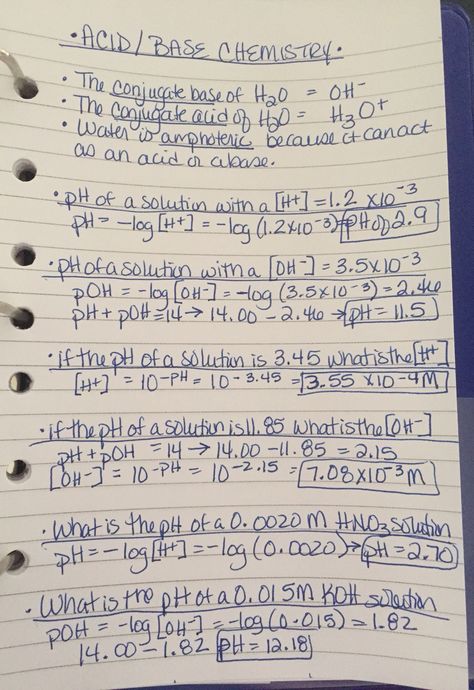 • ACID/BASE CHEMISTRY •
• The conjugate base of H₂O = OH⁻
• The conjugate acid of H₂O = H₃O⁺
• Water is amphoteric because it can act
as an acid or a base.
• pH of a solution with a [H+] = 1.2 x10⁻³
pH = -log[H+] = -log(1.2x10⁻³) = pH of 2.9
• pH of a solution with a [OH⁻] = 3.5x10⁻³
pOH = -log[OH⁻] = -log(3.5x10⁻³) = 2.46
pH + pOH = 14 → 14.00 - 2.46 → pH = 11.5
• if the pH of a solution is 3.45 what is the [H+]
[H+] = 10⁻ᵖᴴ = 10⁻³·⁴⁵ = 3.55 x10-4M
• if the pH of a solution is 11.85 what is the [OH⁻]
pH + pOH = 14 → 14.00 - 11.85 = 2.15
[OH⁻] = 10⁻ᵖᴴ = 10⁻²·¹⁵ = 7.08x10⁻³M
• What is the pH of a 0.0020 M HNO₃ solution
pH = -log[H+] = -log(0.0020) → pH = 2.70
• What is the pH of a 0.015M KOH solution
pOH = -log[OH⁻] = -log(0.015) = 1.82
14.00 - 1.82 pH = 12.18